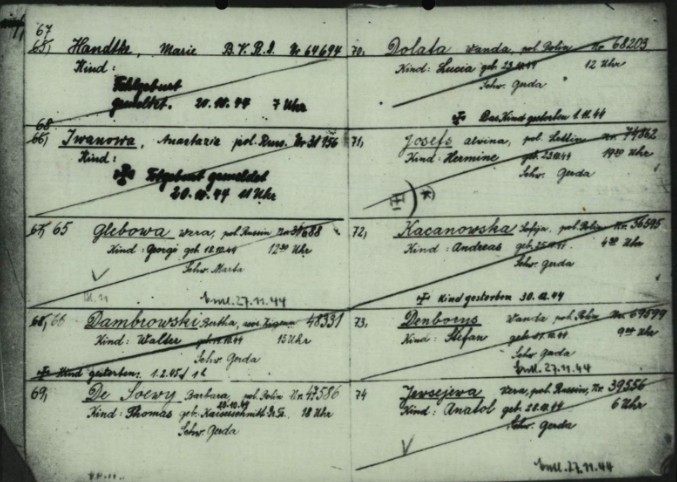 67
65, Handtke, Marie B.V.R.D. Nr 64694
Kind:
Fehlgeburt
gemeldet. 20.10.44 7 Uhr
68
66, Iwanowa, Anastazia pol. Russ. Nr 31456
Kind:
Felgeburt gemeldet
20.10.44 11 Uhr
65 Glebowa Wera, pol. Russin
Kind: Georgi geb. 12 30 Uhr
Schw. Marta
Entl. 27.11.44
66 Dambrowski Bertha, 48331
Kind: Walder geb. 15 Uhr
Schw. Gerda
Kind gestorben. 1.2.45
69, De Soewy Barbara, pol. Polin Nr.
Kind: Thomas geb. Kaiserschnitt 18 Uhr
Schw. Gerda
70, Dolata Wanda, pol. Polin Nr. 68203
Kind: Lucia geb. 12 Uhr
Schw. Gerda
Das Kind gestorben 1.11.44
71, Josefs Alvina, pol. Nr. 74862
Kind: Hermine geb. 23.10.44 Uhr
Schw. Gerda
72, Kacanowska Sofija, pol. Polin Nr.
Kind: Andreas geb. Uhr
Schw. Gerda
Kind gestorben 30.12.44
73, Denboins Wanda pol. Polin Nr. 69599
Kind: Stefan geb. Uhr
Schw. Gerda
Entl. 27.11.44
74 Jewsejewa Wera, pol. Russin, Nr. 39556
Kind: Anatol geb. 28.10.44 6 Uhr
Schw. Gerda
Entl. 27.11.44